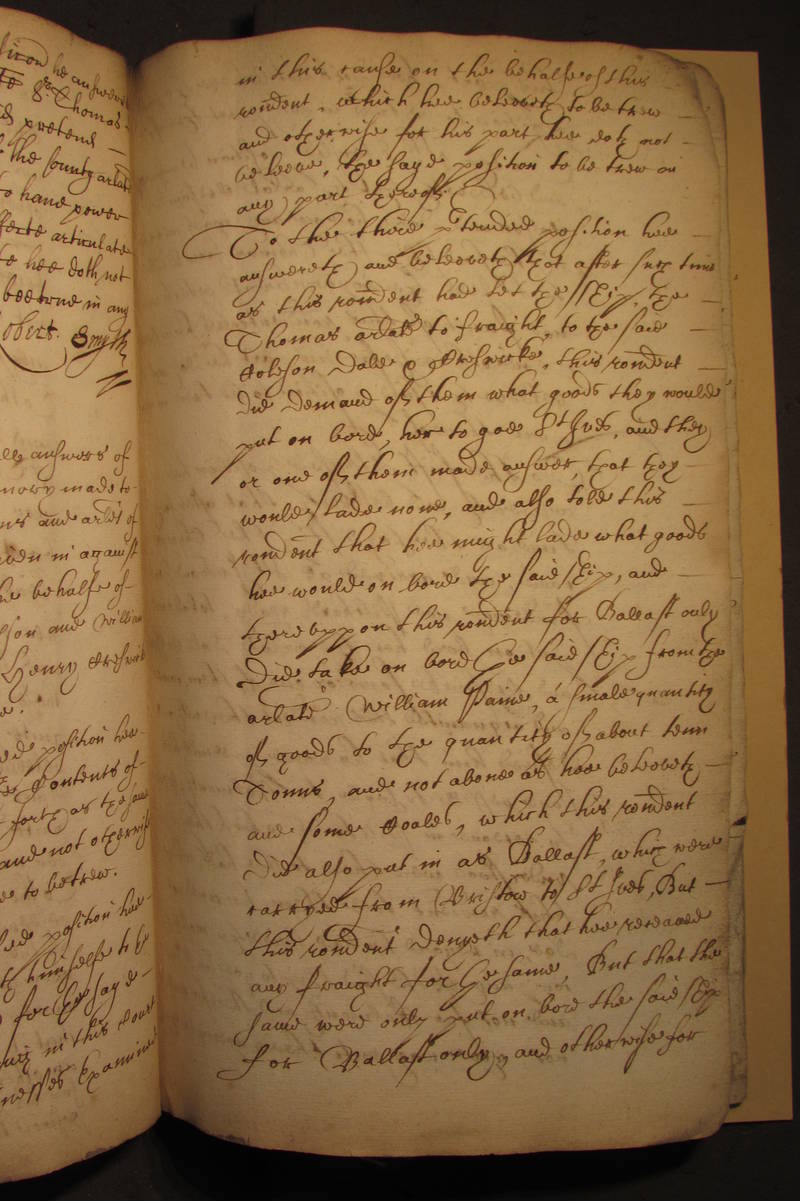 he answered
Sr. Thomas
pretend
the County arlate
to haue power
articulate
hee doth not
bee true in any
Robert. Smyth
answers of
made to
and arlēs of
giuen in against
the behalfe of
and William
Henry
position hee
Contents of
forth as the same
and not otherwise
to be trew.
position hee
himselfe to be
for the saye
in this Court
witnesses Examined
in this cause on the behalfe of this
rondent, which hee beleeveth to be trew
and otherwise for his part hee doth not
beleeve, the saye position to be trew in
any part thereof.
To the third p'tended position hee
answereth and beleeveth that after such time
as this rondent had let the ship, the
Thomas arlate to fraight, to the said
Dale & this rondent
did demand of them what goods they would
put on bord, her to goe St Ives, and they
or one of them made answer, that they
would lade none, and also told this
rondent that hee might lade what goods
hee would on bord the said ship, and
thereuppon this rondent for Ballast only
did take on bord the said ship from the
arlate William Paine, a smale quantity
of goods to the quantity of about tenn
Tonns, and not aboue as hee beleeveth
and some Coales, which this rondent
did also put in as Ballast, which were
carryed from Bristow to St Ives, But
this rondent denyeth that hee receaved
any fraight for the same, But that the
same were only put on bord the said ship
for Ballast only, and otherwise for